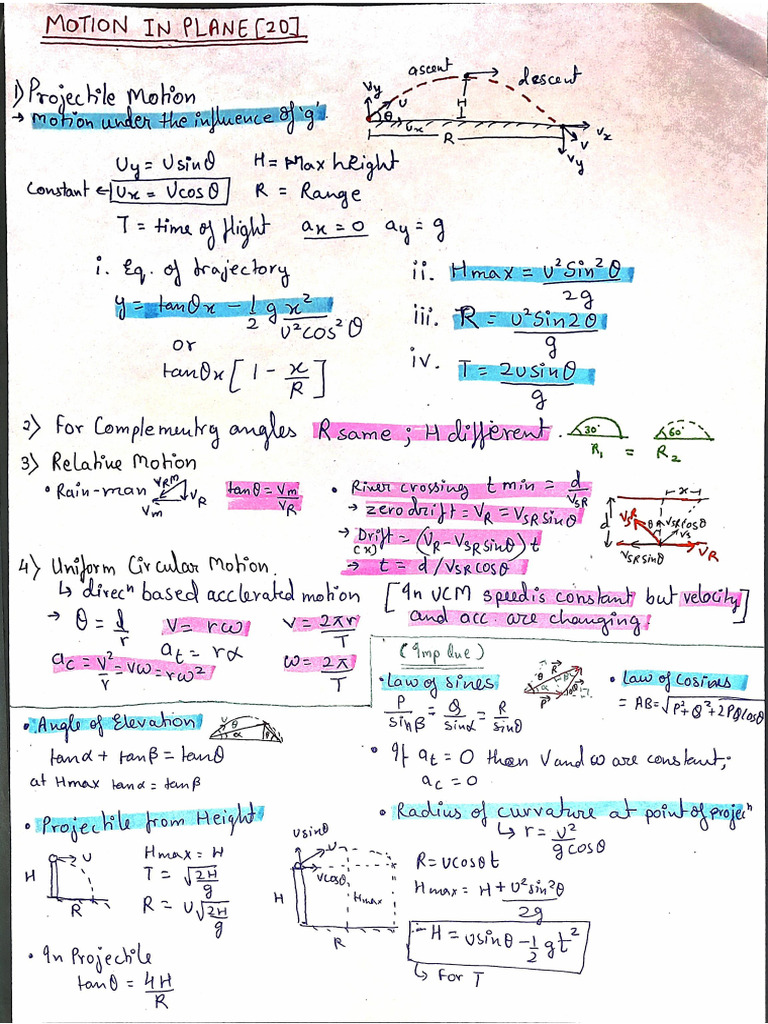 MOTION IN PLANE [20]
1) Projectile Motion
→ Motion under the influence of 'g'.
ascent descent
Vy U θ Ux H R Vx V Vy
Uy = Usinθ H = Max hEight
Constant ← Ux = Ucosθ R = Range
T = time of flight ax = 0 ay = g
i. Eq. of trajectory
y = tanθx − 1/2 g x²/U²cos²θ
or
tanθx [1 − x/R]
ii. Hmax = U²Sin²θ/2g
iii. R = U²Sin2θ/g
iv. T = 2Usinθ/g
2) For Complementry angles R same ; H different.
30° 60°
R₁ = R₂
3) Relative Motion
• Rain-man VRM VR Vm tanθ = Vm/VR
• River crossing t min = d/VSR
→ zero drift = VR = VSR sinθ
→ Drift = (VR − VSR sinθ) t
(x)
→ t = d/VSR cosθ
x d VSR θ VSR cosθ VS VSR sinθ VR
4) Uniform Circular Motion.
↳ direcⁿ based acclerated motion
[In UCM speed is constant but velocity
and acc. are changing.]
→ θ = l/r V = rω V = 2πr/T
ac = V²/r = Vω = rω² at = rα ω = 2π/T
(Imp Que)
• Law of sines
P/sinβ = Q/sinα = R/sinθ
• Law of cosines
= AB = √P²+Q²+2PQcosθ
• Angle of Elevation
U θ α β
tanα + tanβ = tanθ
at Hmax tanα = tanβ
• If at = 0 then V and ω are constant;
ac = 0
• Projectile from Height
H U R
Hmax = H
T = √2H/g
R = U√2H/g
Usinθ U Ucosθ H Hmax R
• Radius of curvature at point of projecⁿ
↳ r = U²/gcosθ
R = Ucosθt
Hmax = H + U²sin²θ/2g
−H = Usinθ − 1/2 gt²
↳ For T
• In Projectile
tanθ = 4H/R